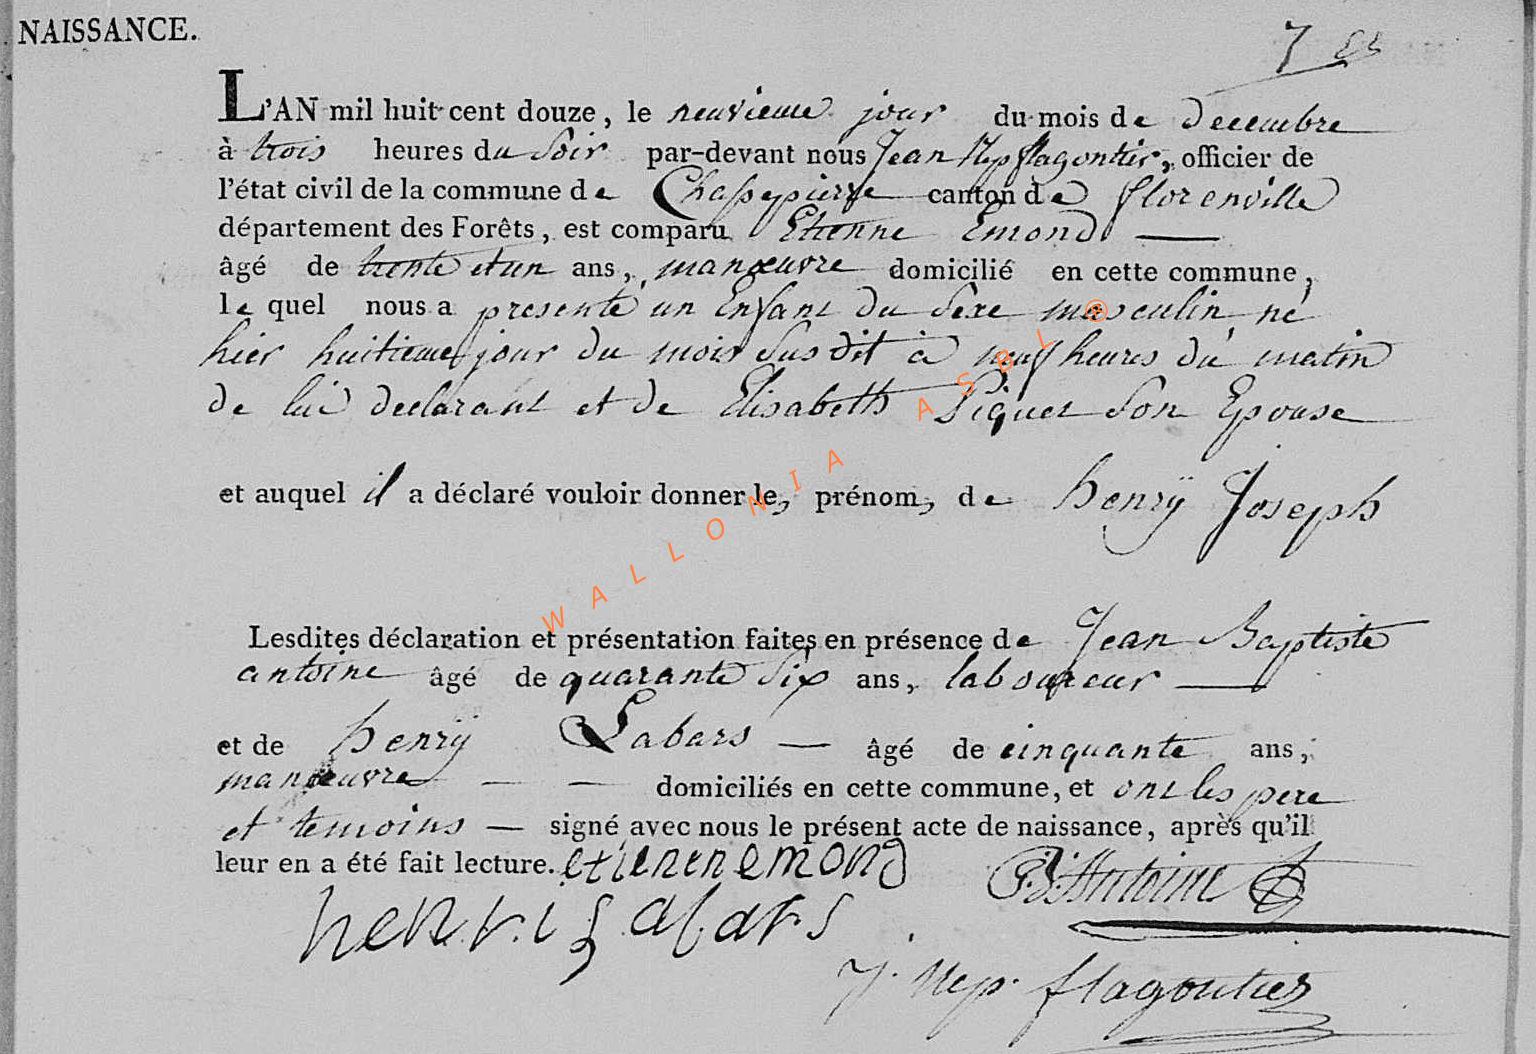 NAISSANCE.
7
L'AN mil huit cent douze, le neuvieme jour du mois de Decembre
à trois heures du Soir par-devant nous Jean Nep flagontier, officier de
l'état civil de la commune de Chassepierre canton de florenville
département des Forêts, est comparu Etienne Emond
âgé de trente et un ans, manœuvre domicilié en cette commune,
le quel nous a presenté un Enfant du Sexe masculin né
hier huitieme jour du mois Sus dit à neuf heures du matin
de lui declarant et de Elisabeth Piquet Son Epouse
et auquel il a déclaré vouloir donner les prénoms de henrÿ Joseph
Lesdites déclaration et présentation faites en présence de Jean Baptiste
antoine âgé de quarante Six ans, laboureur
et de henrÿ Labars âgé de cinquante ans,
manœuvre domiciliés en cette commune, et ont les pere
et temoins signé avec nous le présent acte de naissance, après qu'il
leur en a été fait lecture. etienenemond J.B. Antoine
henri Labars
J. Nep. flagontier
WALLONIA ASBL ©